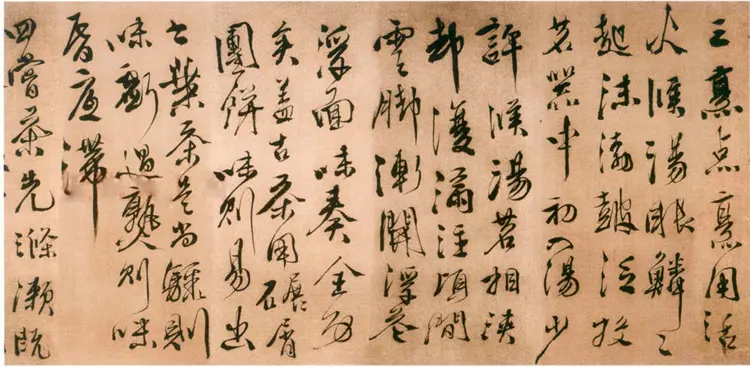 三烹点烹用活
火候湯眼鱗〻
起沫渤鼓泛投
茗器中初入湯少
許候湯茗相浹
却復滿注頃間
雲脚漸開浮花
浮面味奏全功
矣盖古茶用碾屑
團餅味則易出
今葉茶是尚驟則
味虧過熟則味
昏底滯
四嘗茶先滌漱既